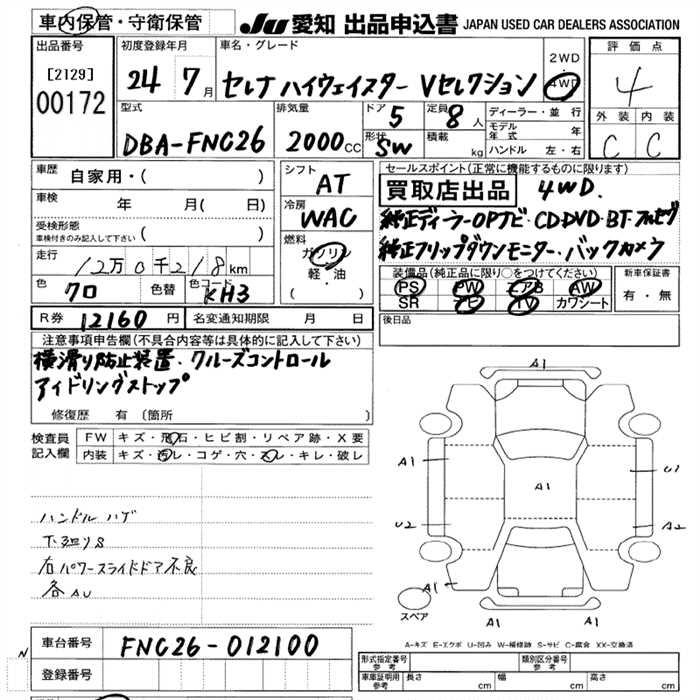 車内保管・守衛保管
JU 愛知 出品申込書 JAPAN USED CAR DEALERS ASSOCIATION
出品番号
[2129]
00172
初度登録年月
24 7月
車名・グレード
セレナ ハイウェイスター Vセレクション
2WD
4WD
評価点
4
外装 内装
C C
型式
DBA-FNC26
排気量
2000cc
ドア
5
定員
8人
形状
SW
積載
kg
ディーラー・並行
モデル年式 年
ハンドル 左・右
車歴
自家用・( )
車検
年 月( 日)
受検形態
車検付きのみ記入して下さい ( )
走行
12万0千218km
色
クロ
色替
色コード
KH3
シフト
AT
冷房
WAC
燃料
ガソリン
軽・油
( )
セールスポイント(正常に機能するものに限ります)
買取店出品 4WD.
純正ディーラーOPナビ・CD・DVD・BT・フルセグ
純正フリップダウンモニター・バックカメラ
装備品(純正品に限り○をつけてください)
PS PW エアB AW
SR ナビ TV カワシート
新車保証書
有・無
R券 12160円
名変通知期限 月 日
後日品
注意事項申告欄(不具合内容等は具体的に記入して下さい)
横滑り防止装置・クルーズコントロール
アイドリングストップ
修復歴 有 〔箇所 〕
検査員記入欄
FW キズ・飛石・ヒビ割・リペア跡・X要
内装 キズ・汚レ・コゲ・穴・スレ・キレ・破レ
ハンドル ハゲ
下廻りS
右パワースライドドア不良
各AU
A1
A1
U1
A1
U2
A2
A1
A1
A1
スペア
A-キズ E-エクボ U-凹み W-補修跡 S-サビ C-腐食 XX-交換済
N
車台番号 FNC26-012100
登録番号
形式指定番号 参考
類別区分番号 参考
車庫証明用 参考
長さ cm 幅 cm 高さ cm